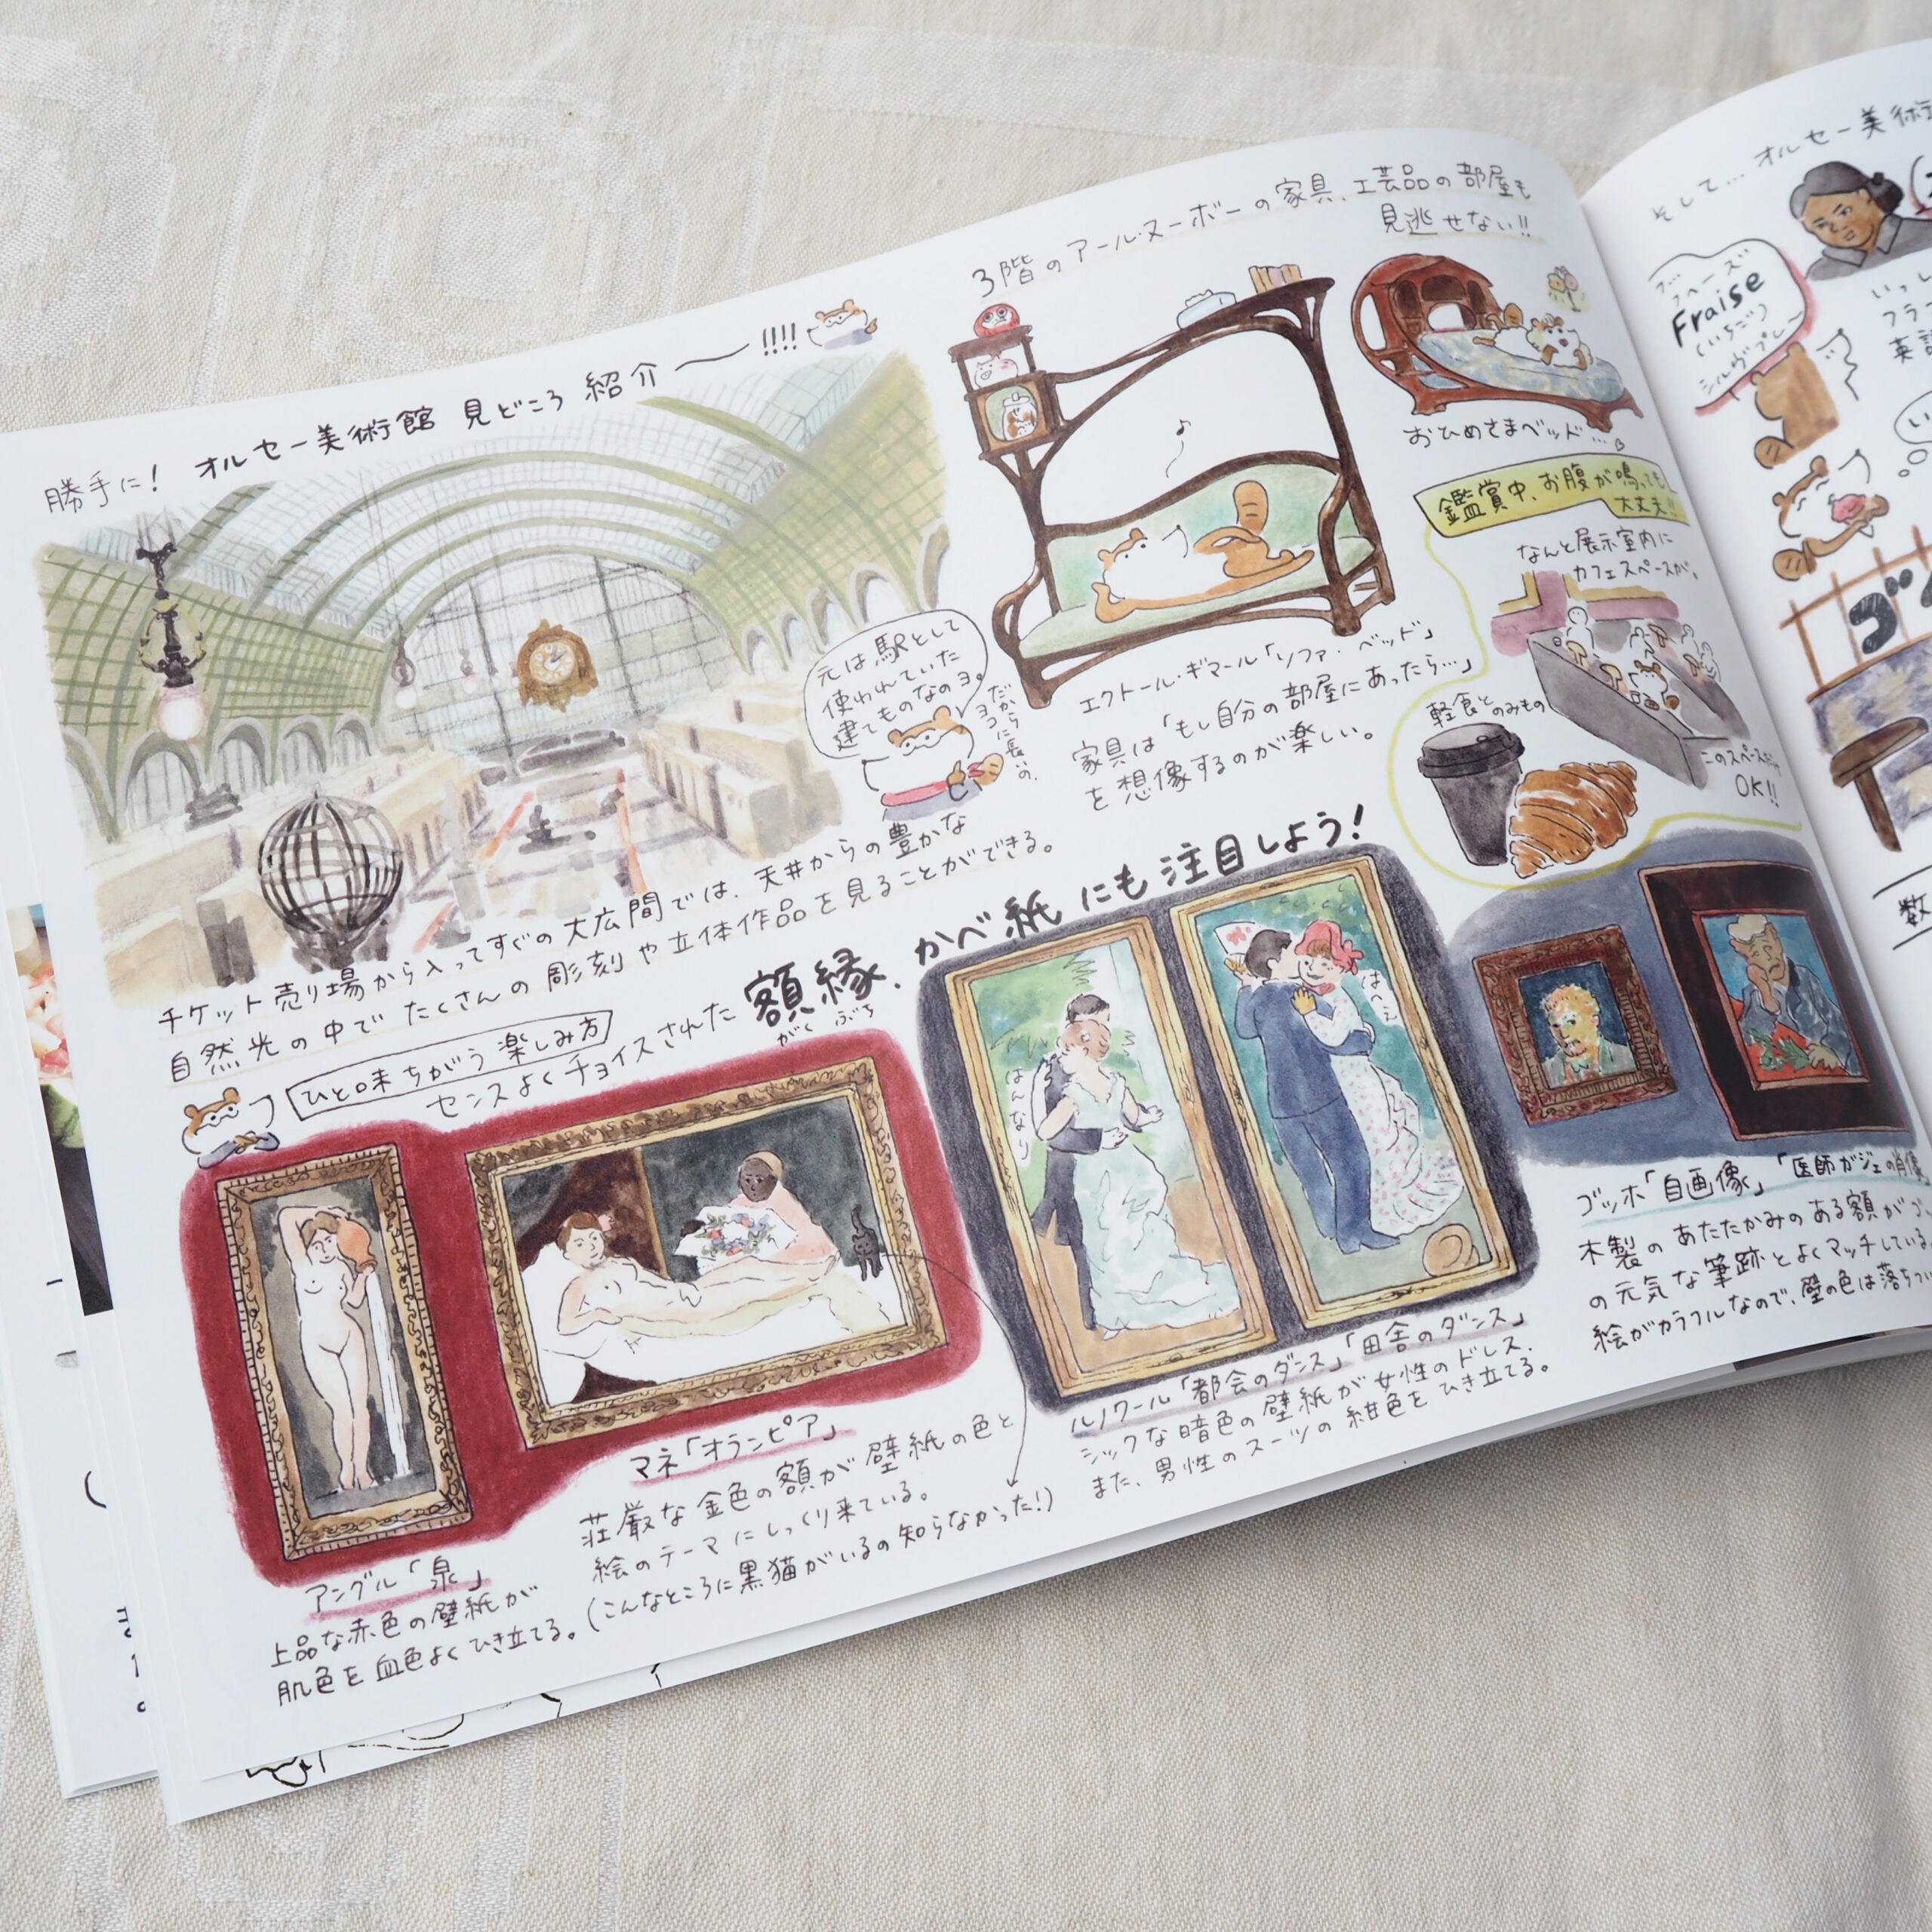 勝手に! オルセー美術館 見どころ 紹介〜!!!!
元は駅として
使われていた
建てものなのヨ。
だから
ヨコに長いの。
チケット売り場から入ってすぐの大広間では、天井からの豊かな
自然光の中で たくさんの 彫刻や立体作品を見ることができる。
3階のアール・ヌーボーの家具、工芸品の部屋も
見逃せない!!
エクトール・ギマール「ソファ・ベッド」
家具は「もし自分の部屋にあったら…」
を想像するのが楽しい。
おひめさまベッド…
鑑賞中、お腹が鳴っても
大丈夫!!
なんと展示室内に
カフェスペースが。
軽食とのみもの
OK!!
ひと味ちがう楽しみ方
センスよくチョイスされた 額縁、かべ紙 にも注目しよう!
がくぶち
アングル「泉」
上品な赤色の壁紙が
肌色を血色よくひき立てる。
マネ「オランピア」
荘厳な金色の額が壁紙の色と
絵のテーマにしっくり来ている。
(こんなところに黒猫がいるの知らなかった!)
はんなり
はへえ
ルノワール「都会のダンス」「田舎のダンス」
シックな暗色の壁紙が女性のドレス、
また、男性のスーツの紺色をひき立てる。
ゴッホ「自画像」「医師ガジェの肖像
木製のあたたかみのある額がゴッ
の元気な筆跡とよくマッチしている。
絵がカラフルなので、壁の色は落ちつい
そして… オルセー美術
Fraise
(いちご)
シルヴプレー
いっし
フラン
英語
い
ゴ
数